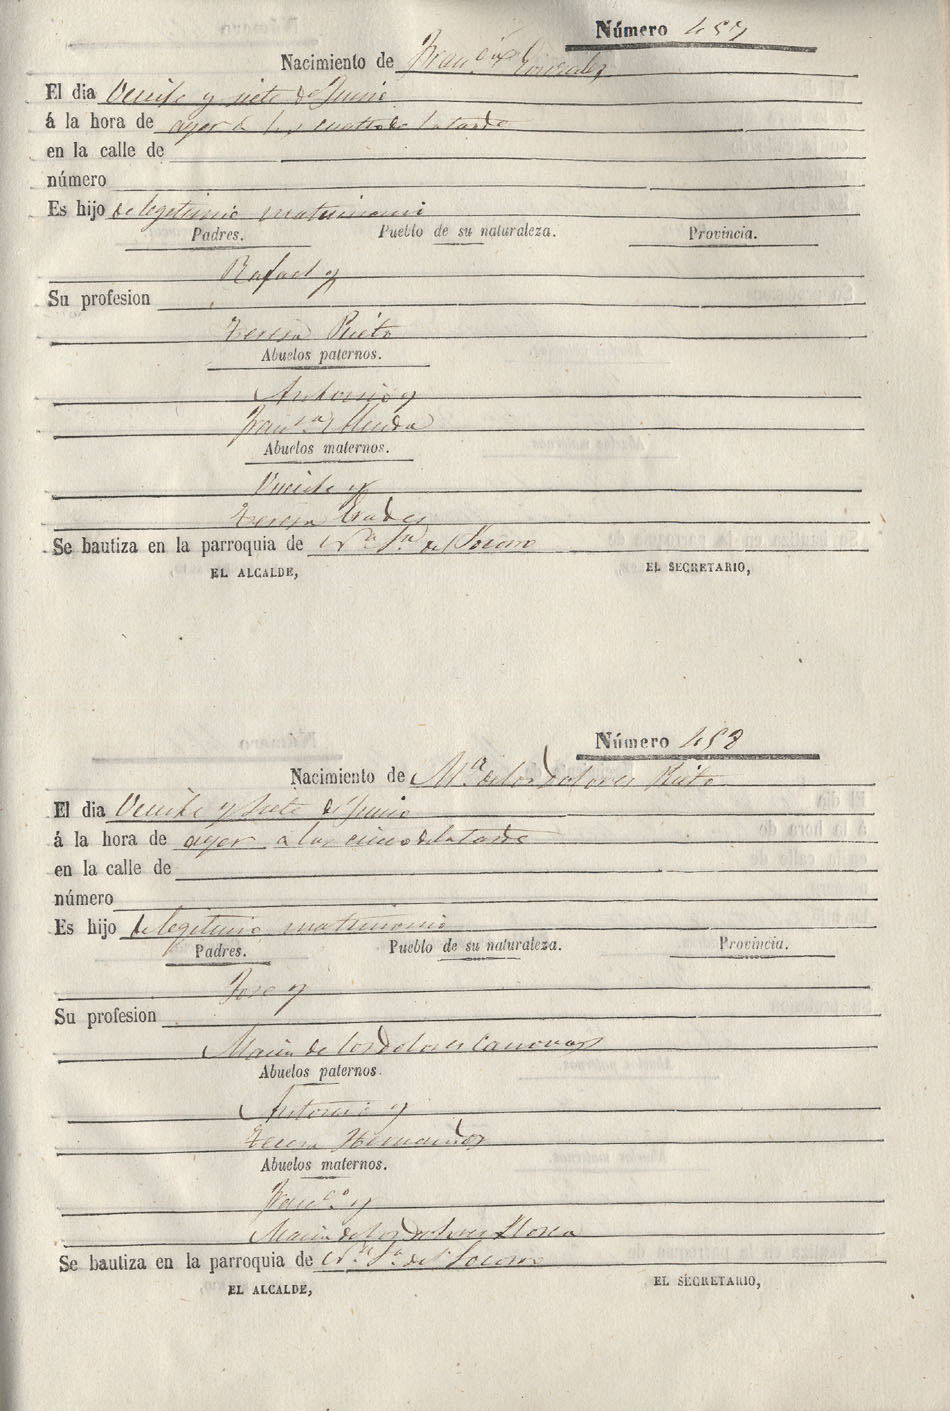 Número 457
Nacimiento de Fran.co Gonzalez
El dia Veinte y siete de Junio
á la hora de ayer a las cuatro de la tarde
en la calle de
número
Es hijo de legitimo matrimonio
Padres. Pueblo de su naturaleza. Provincia.
Rafael y
Su profesion
Teresa Prieto
Abuelos paternos.
Antonio y
Fran.ca
Abuelos maternos.
Vicente y
Teresa
Se bautiza en la parroquia de Ntra Sra del Socorro
EL ALCALDE, EL SECRETARIO,
Número 458
Nacimiento de Ma de los Dolores
El dia Veinte y siete de Junio
á la hora de ayer a las cinco de la tarde
en la calle de
número
Es hijo de legitimo matrimonio
Padres. Pueblo de su naturaleza. Provincia.
Jose y
Su profesion
Maria de los Dolores Canovas
Abuelos paternos.
Antonio y
Teresa Hernandez
Abuelos maternos.
Fran.co y
Maria de los Dolores Llorca
Se bautiza en la parroquia de Ntra Sra del Socorro
EL ALCALDE, EL SECRETARIO,